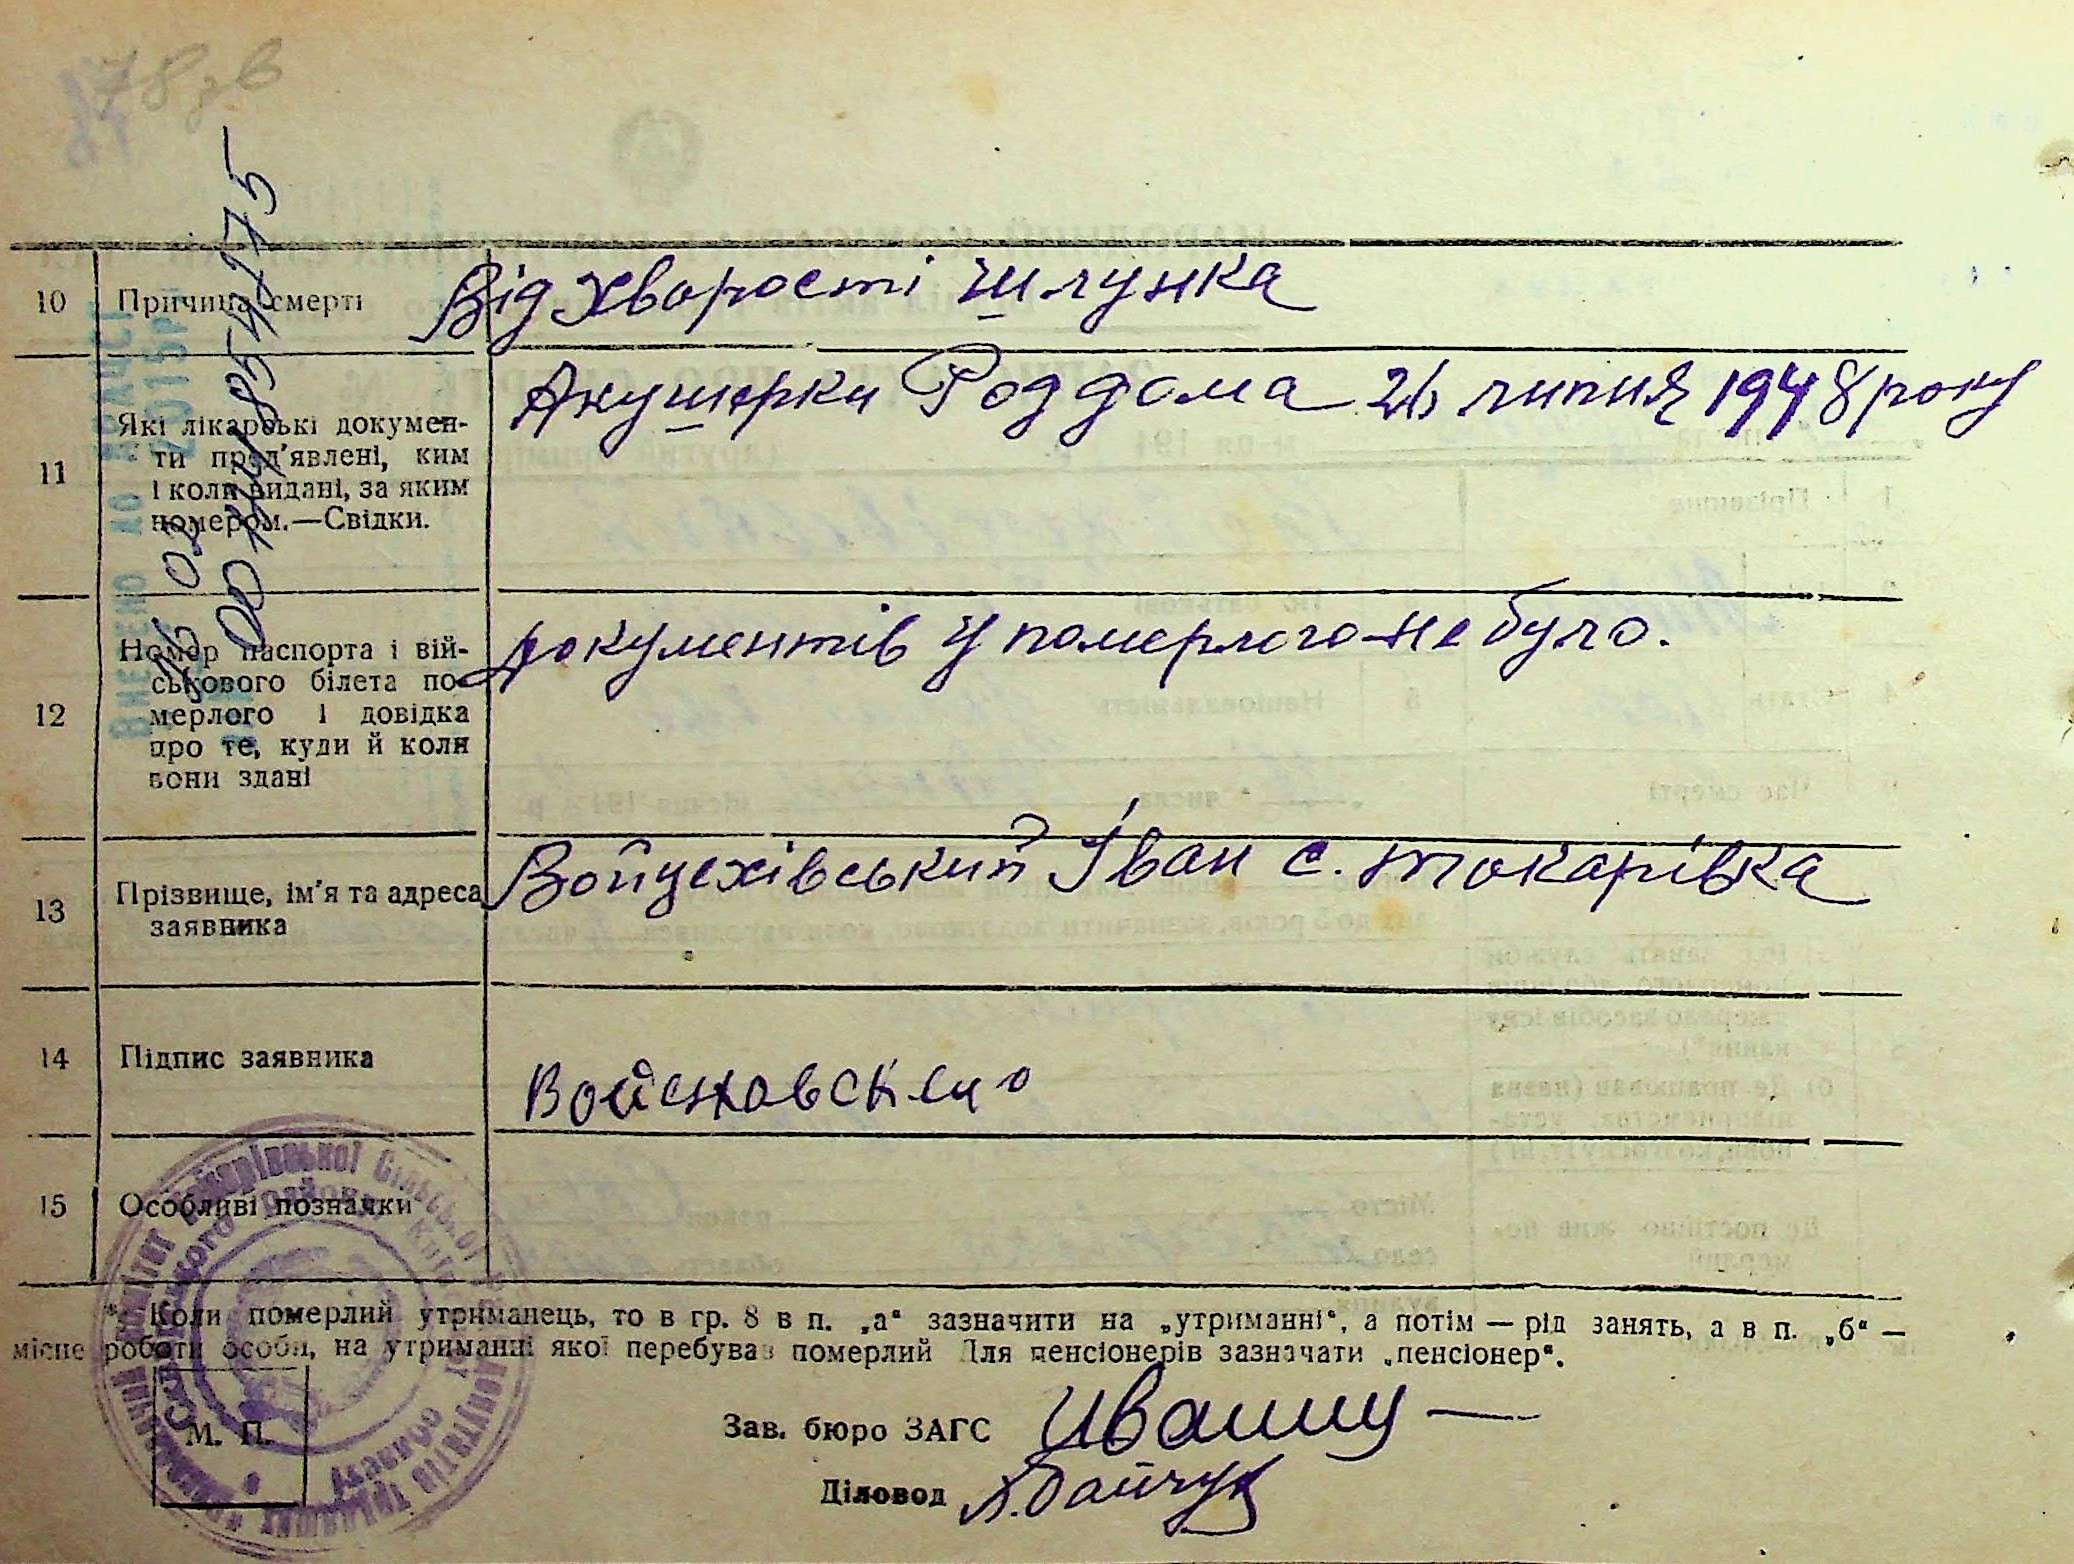 78зв
10 Причина смерті Від хворості шлунка
11 Які лікарські докумен-
ти пред'явлені, ким
і коли видані, за яким
номером.—Свідки.
Акушерки Роддома 26 липня 1948 року
12 Номер паспорта і вій-
ськового білета по-
мерлого і довідка
про те, куди й коли
вони здані
документів у померлого не було.
13 Прізвище, ім'я та адреса
заявника
Войцехівський Іван с. Токарівка
14 Підпис заявника
15 Особливі позначки
* Коли померлий утриманець, то в гр. 8 в п. „а“ зазначити на „утриманні“, а потім — рід занять, а в п. „б“ —
місце роботи особи, на утриманні якої перебував померлий Для пенсіонерів зазначати „пенсіонер“.
М. П.
Зав. бюро ЗАГС
Діловод
ВНЕСЕНО ДО